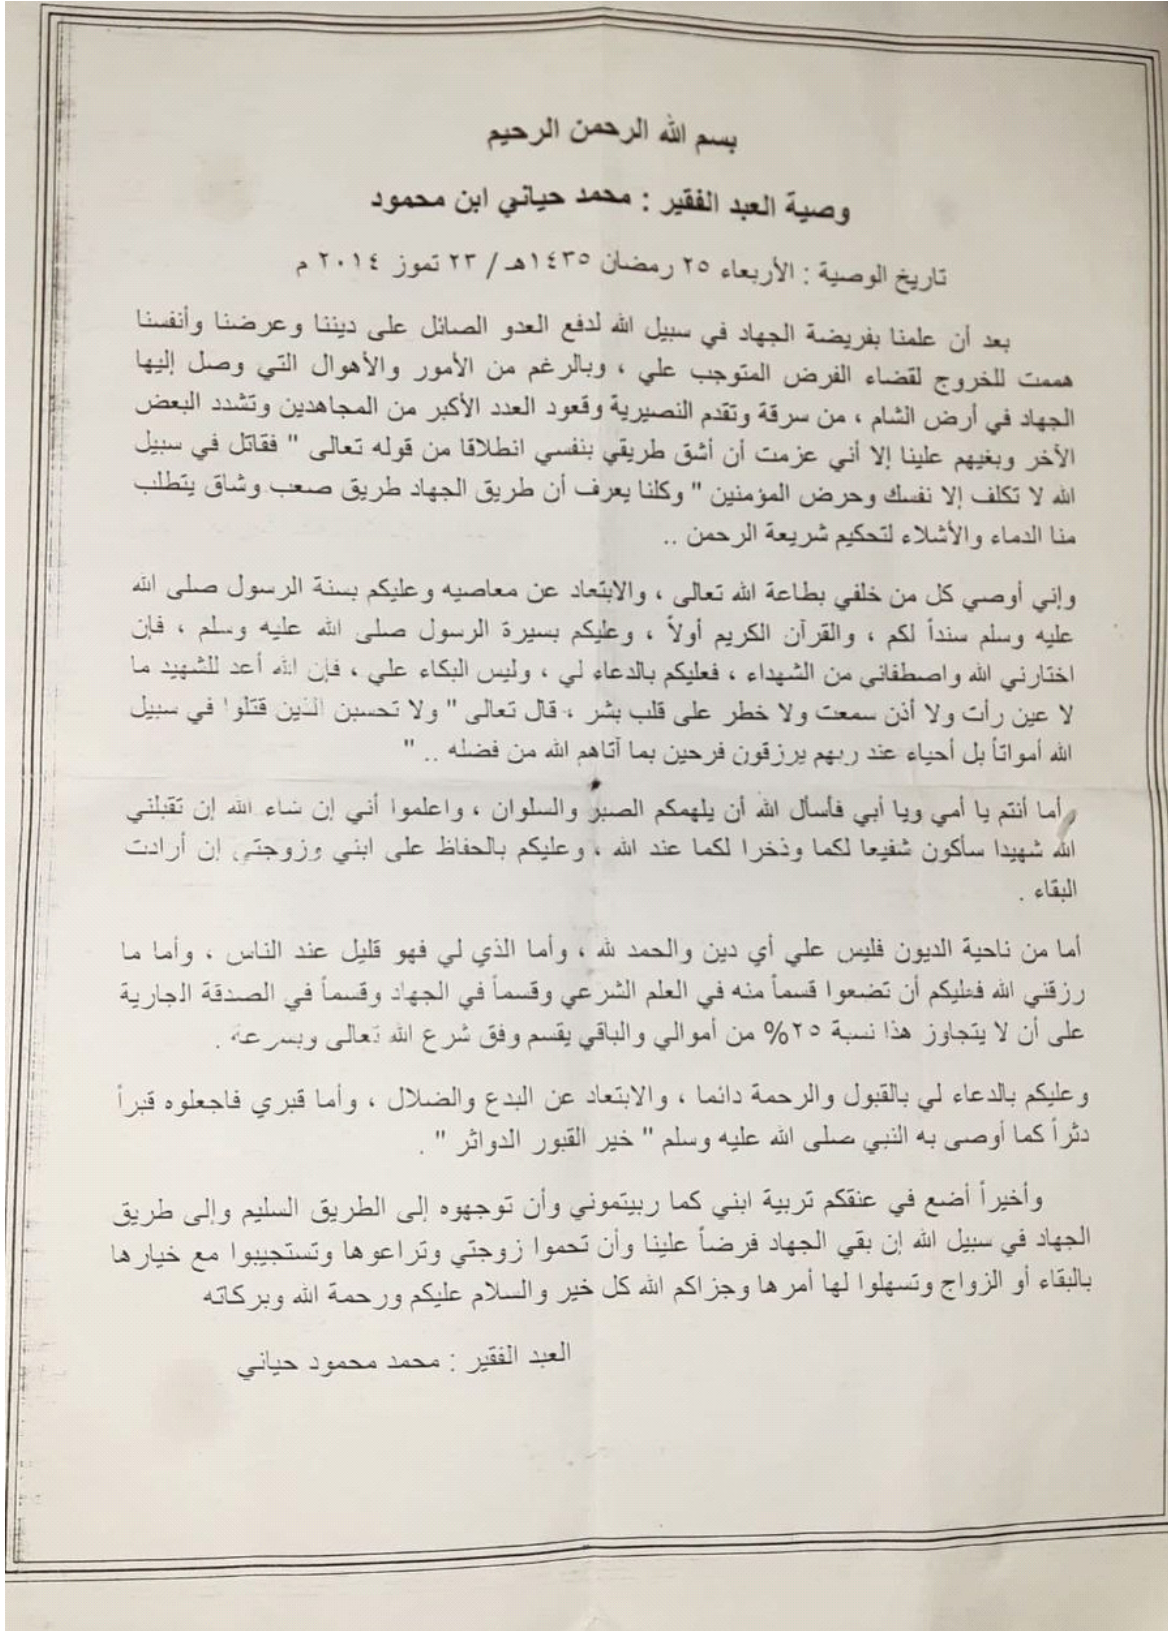 بسم الله الرحمن الرحيم
وصية العبد الفقير : محمد حياني ابن محمود
تاريخ الوصية : الأربعاء ٢٥ رمضان ١٤٣٥هـ / ٢٣ تموز ٢٠١٤ م
بعد أن علمنا بفريضة الجهاد في سبيل الله لدفع العدو الصائل على ديننا وعرضنا وأنفسنا
هممت للخروج لقضاء الفرض المتوجب علي ، وبالرغم من الأمور والأهوال التي وصل إليها
الجهاد في أرض الشام ، من سرقة وتقدم النصيرية وقعود العدد الأكبر من المجاهدين وتشدد البعض
الأخر وبغيهم علينا إلا أني عزمت أن أشق طريقي بنفسي انطلاقا من قوله تعالى " فقاتل في سبيل
الله لا تكلف إلا نفسك وحرض المؤمنين " وكلنا يعرف أن طريق الجهاد طريق صعب وشاق يتطلب
منا الدماء والأشلاء لتحكيم شريعة الرحمن ..
وإني أوصي كل من خلفي بطاعة الله تعالى ، والابتعاد عن معاصيه وعليكم بسنة الرسول صلى الله
عليه وسلم سنداً لكم ، والقرآن الكريم أولاً ، وعليكم بسيرة الرسول صلى الله عليه وسلم ، فإن
اختارني الله واصطفاني من الشهداء ، فعليكم بالدعاء لي ، وليس البكاء علي ، فإن الله أعد للشهيد ما
لا عين رأت ولا أذن سمعت ولا خطر على قلب بشر ، قال تعالى " ولا تحسبن الذين قتلوا في سبيل
الله أمواتاً بل أحياء عند ربهم يرزقون فرحين بما آتاهم الله من فضله .. "
أما أنتم يا أمي ويا أبي فأسأل الله أن يلهمكم الصبر والسلوان ، واعلموا أني إن شاء الله إن تقبلني
الله شهيدا سأكون شفيعا لكما وذخرا لكما عند الله ، وعليكم بالحفاظ على ابني وزوجتي إن أرادت
البقاء .
أما من ناحية الديون فليس علي أي دين والحمد لله ، وأما الذي لي فهو قليل عند الناس ، وأما ما
رزقني الله فعليكم أن تضعوا قسماً منه في العلم الشرعي وقسماً في الجهاد وقسماً في الصدقة الجارية
على أن لا يتجاوز هذا نسبة ٢٥% من أموالي والباقي يقسم وفق شرع الله تعالى وبسرعة .
وعليكم بالدعاء لي بالقبول والرحمة دائما ، والابتعاد عن البدع والضلال ، وأما قبري فاجعلوه قبراً
دثراً كما أوصى به النبي صلى الله عليه وسلم " خير القبور الدواثر " .
وأخيراً أضع في عنقكم تربية ابني كما ربيتموني وأن توجهوه إلى الطريق السليم وإلى طريق
الجهاد في سبيل الله إن بقي الجهاد فرضاً علينا وأن تحموا زوجتي وتراعوها وتستجيبوا مع خيارها
بالبقاء أو الزواج وتسهلوا لها أمرها وجزاكم الله كل خير والسلام عليكم ورحمة الله وبركاته
العبد الفقير : محمد محمود حياني